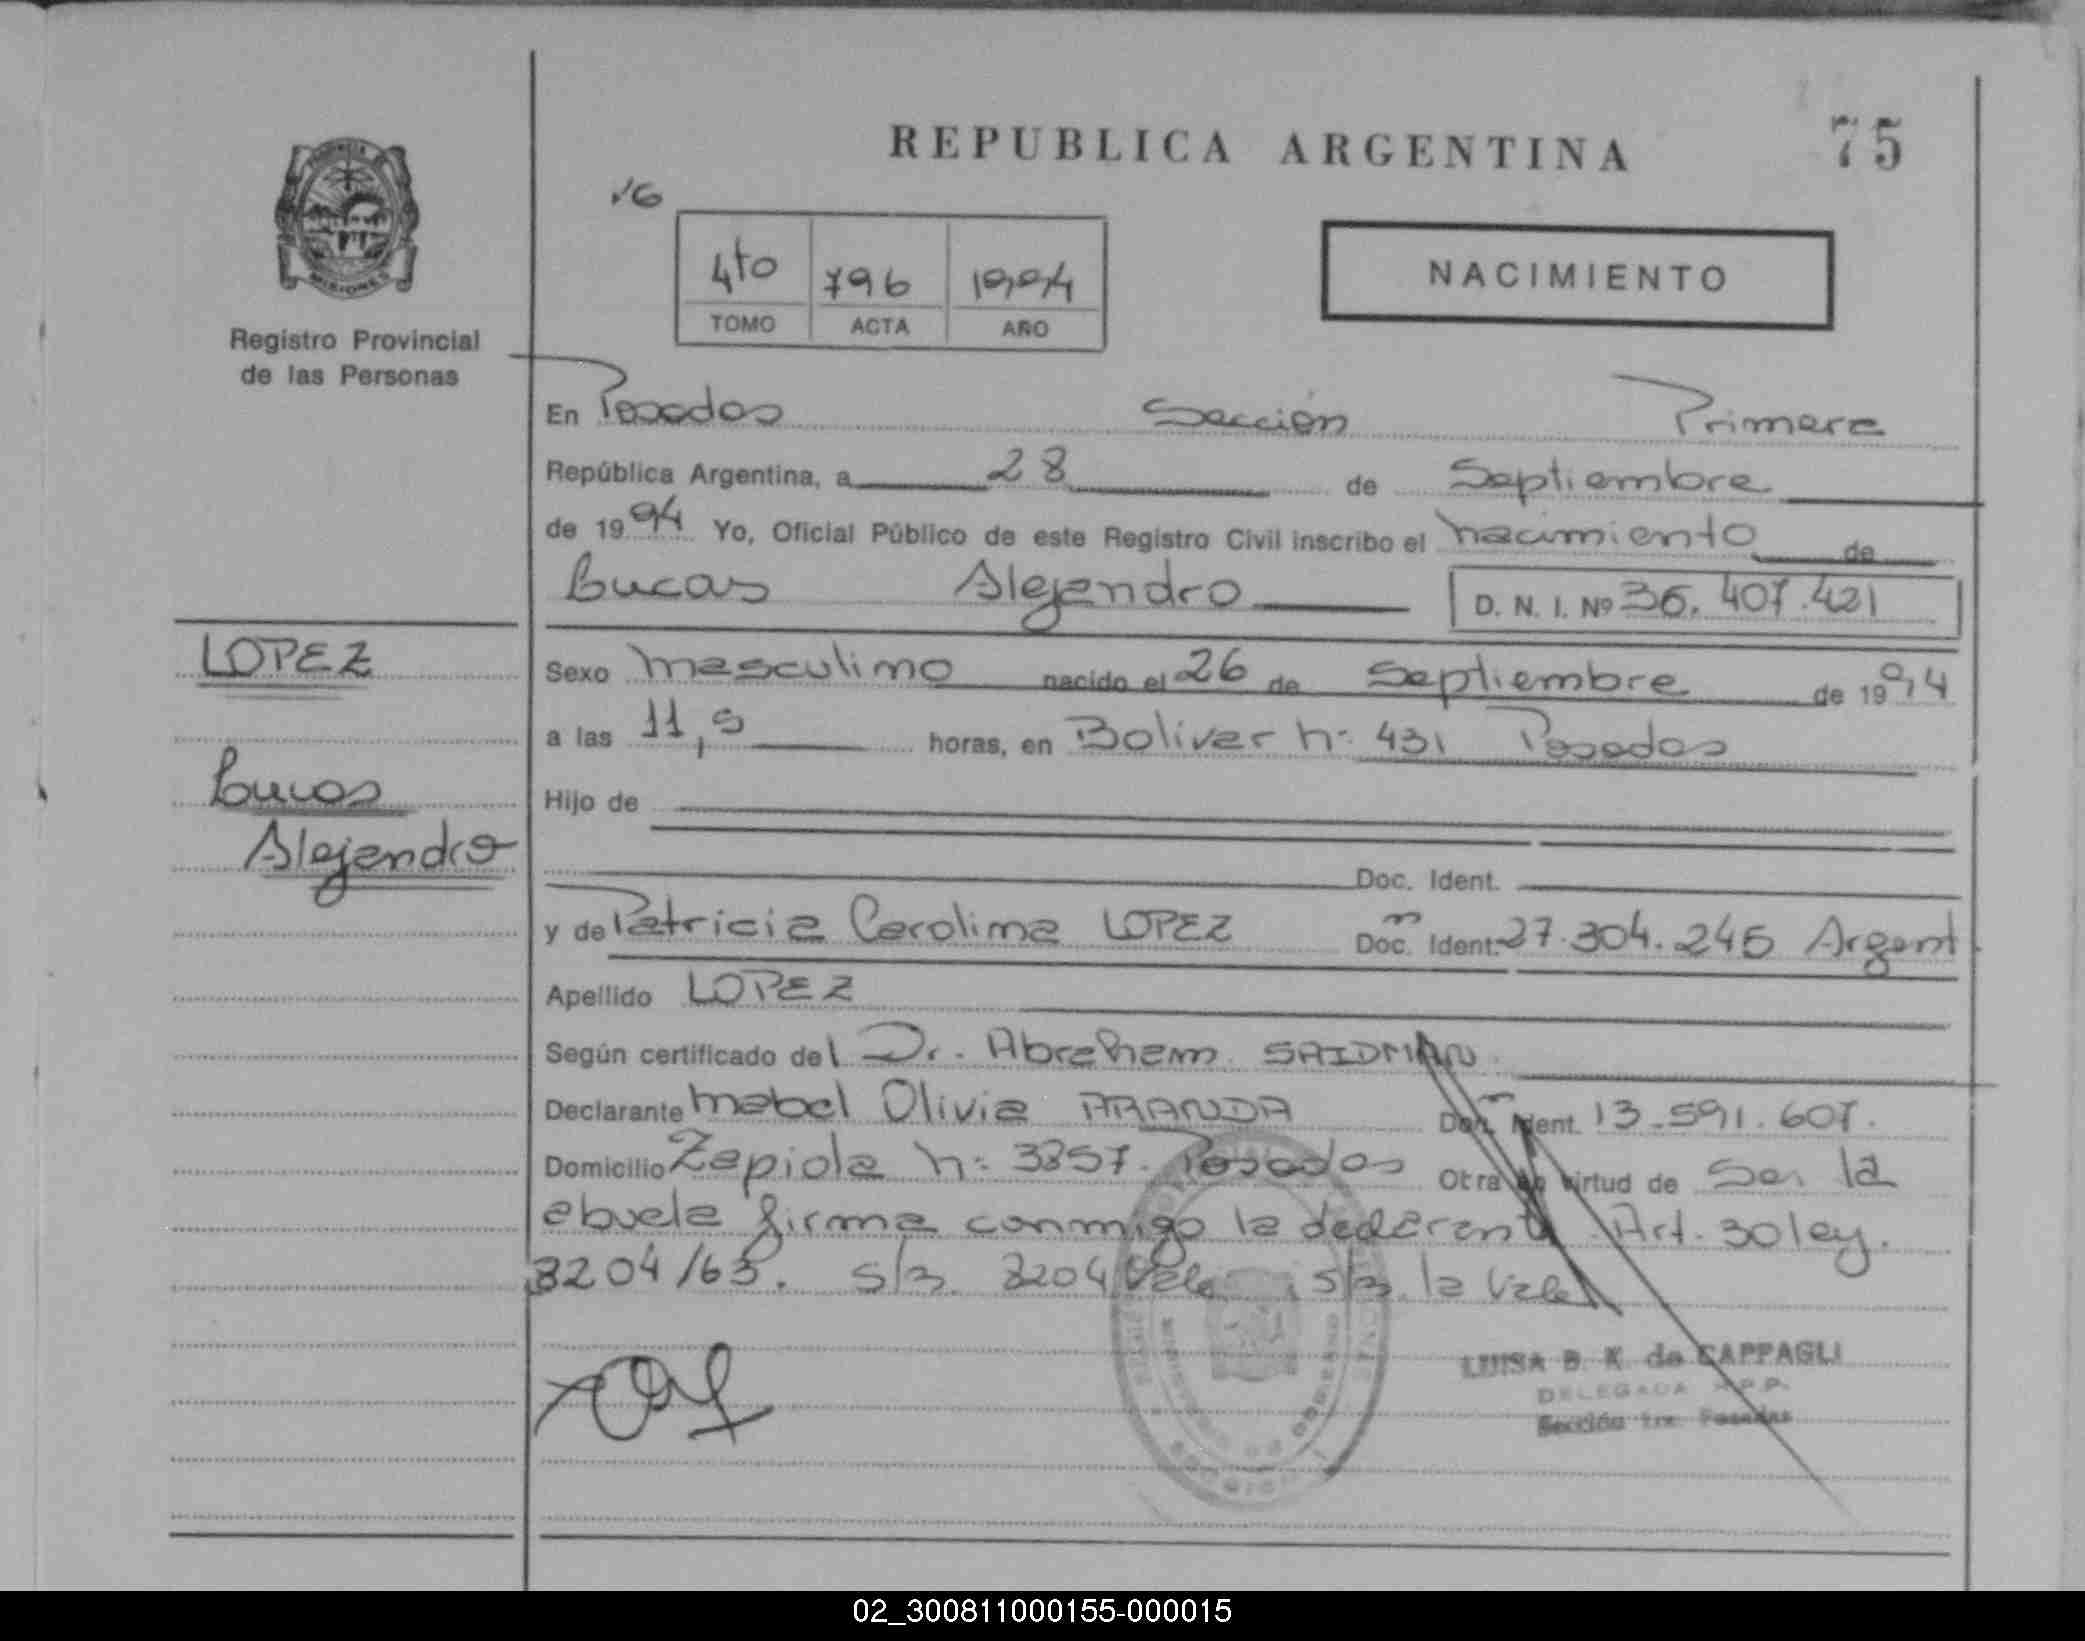 REPUBLICA ARGENTINA
75
16
4to 796 1994
TOMO ACTA AÑO
NACIMIENTO
MISIONES
Registro Provincial
de las Personas
En Posadas Sección Primera
República Argentina, a 28 de Septiembre
de 1994 Yo, Oficial Público de este Registro Civil inscribo el nacimiento de
Lucas Alejandro D. N. I. Nº 36.407.421
LOPEZ
Lucas
Alejandro
Sexo masculino nacido el 26 de Septiembre de 1994
a las 11,5 horas, en Bolivar nº 431 Posadas
Hijo de
Doc. Ident.
y de Patricia Carolina LOPEZ Doc. Ident. 27.304.245 Argent
Apellido LOPEZ
Según certificado del Dr. Abraham SAIDMAN
Declarante Mabel Olivia ARANDA Doc. Ident. 13.591.607.
Domicilio Zapiola nº 3857. Posadas Otra en virtud de Ser la
abuela firma conmigo la declarante. Art. 30 ley.
8204/63. s/r. 8204 Vale s/r. la Vale
LUISA B. K. de CAPPAGLI
DELEGADA R.P.P.
Sección 1ra. Posadas
02_300811000155-000015